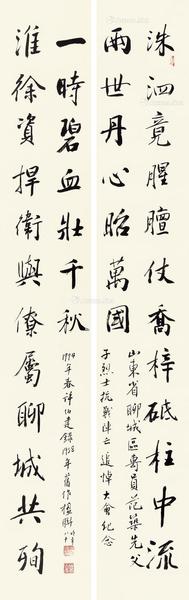 洙泗竟腥膻仗乔梓砥柱中流
两世丹心昭萬國
山東省聊城區專員范築先父
子烈士抗戰陣亡追悼大會紀念
一時碧血壯千秋
淮徐資捍衛與僚屬聊城共殉
1984年春許伯建錄1938年舊作楹聯